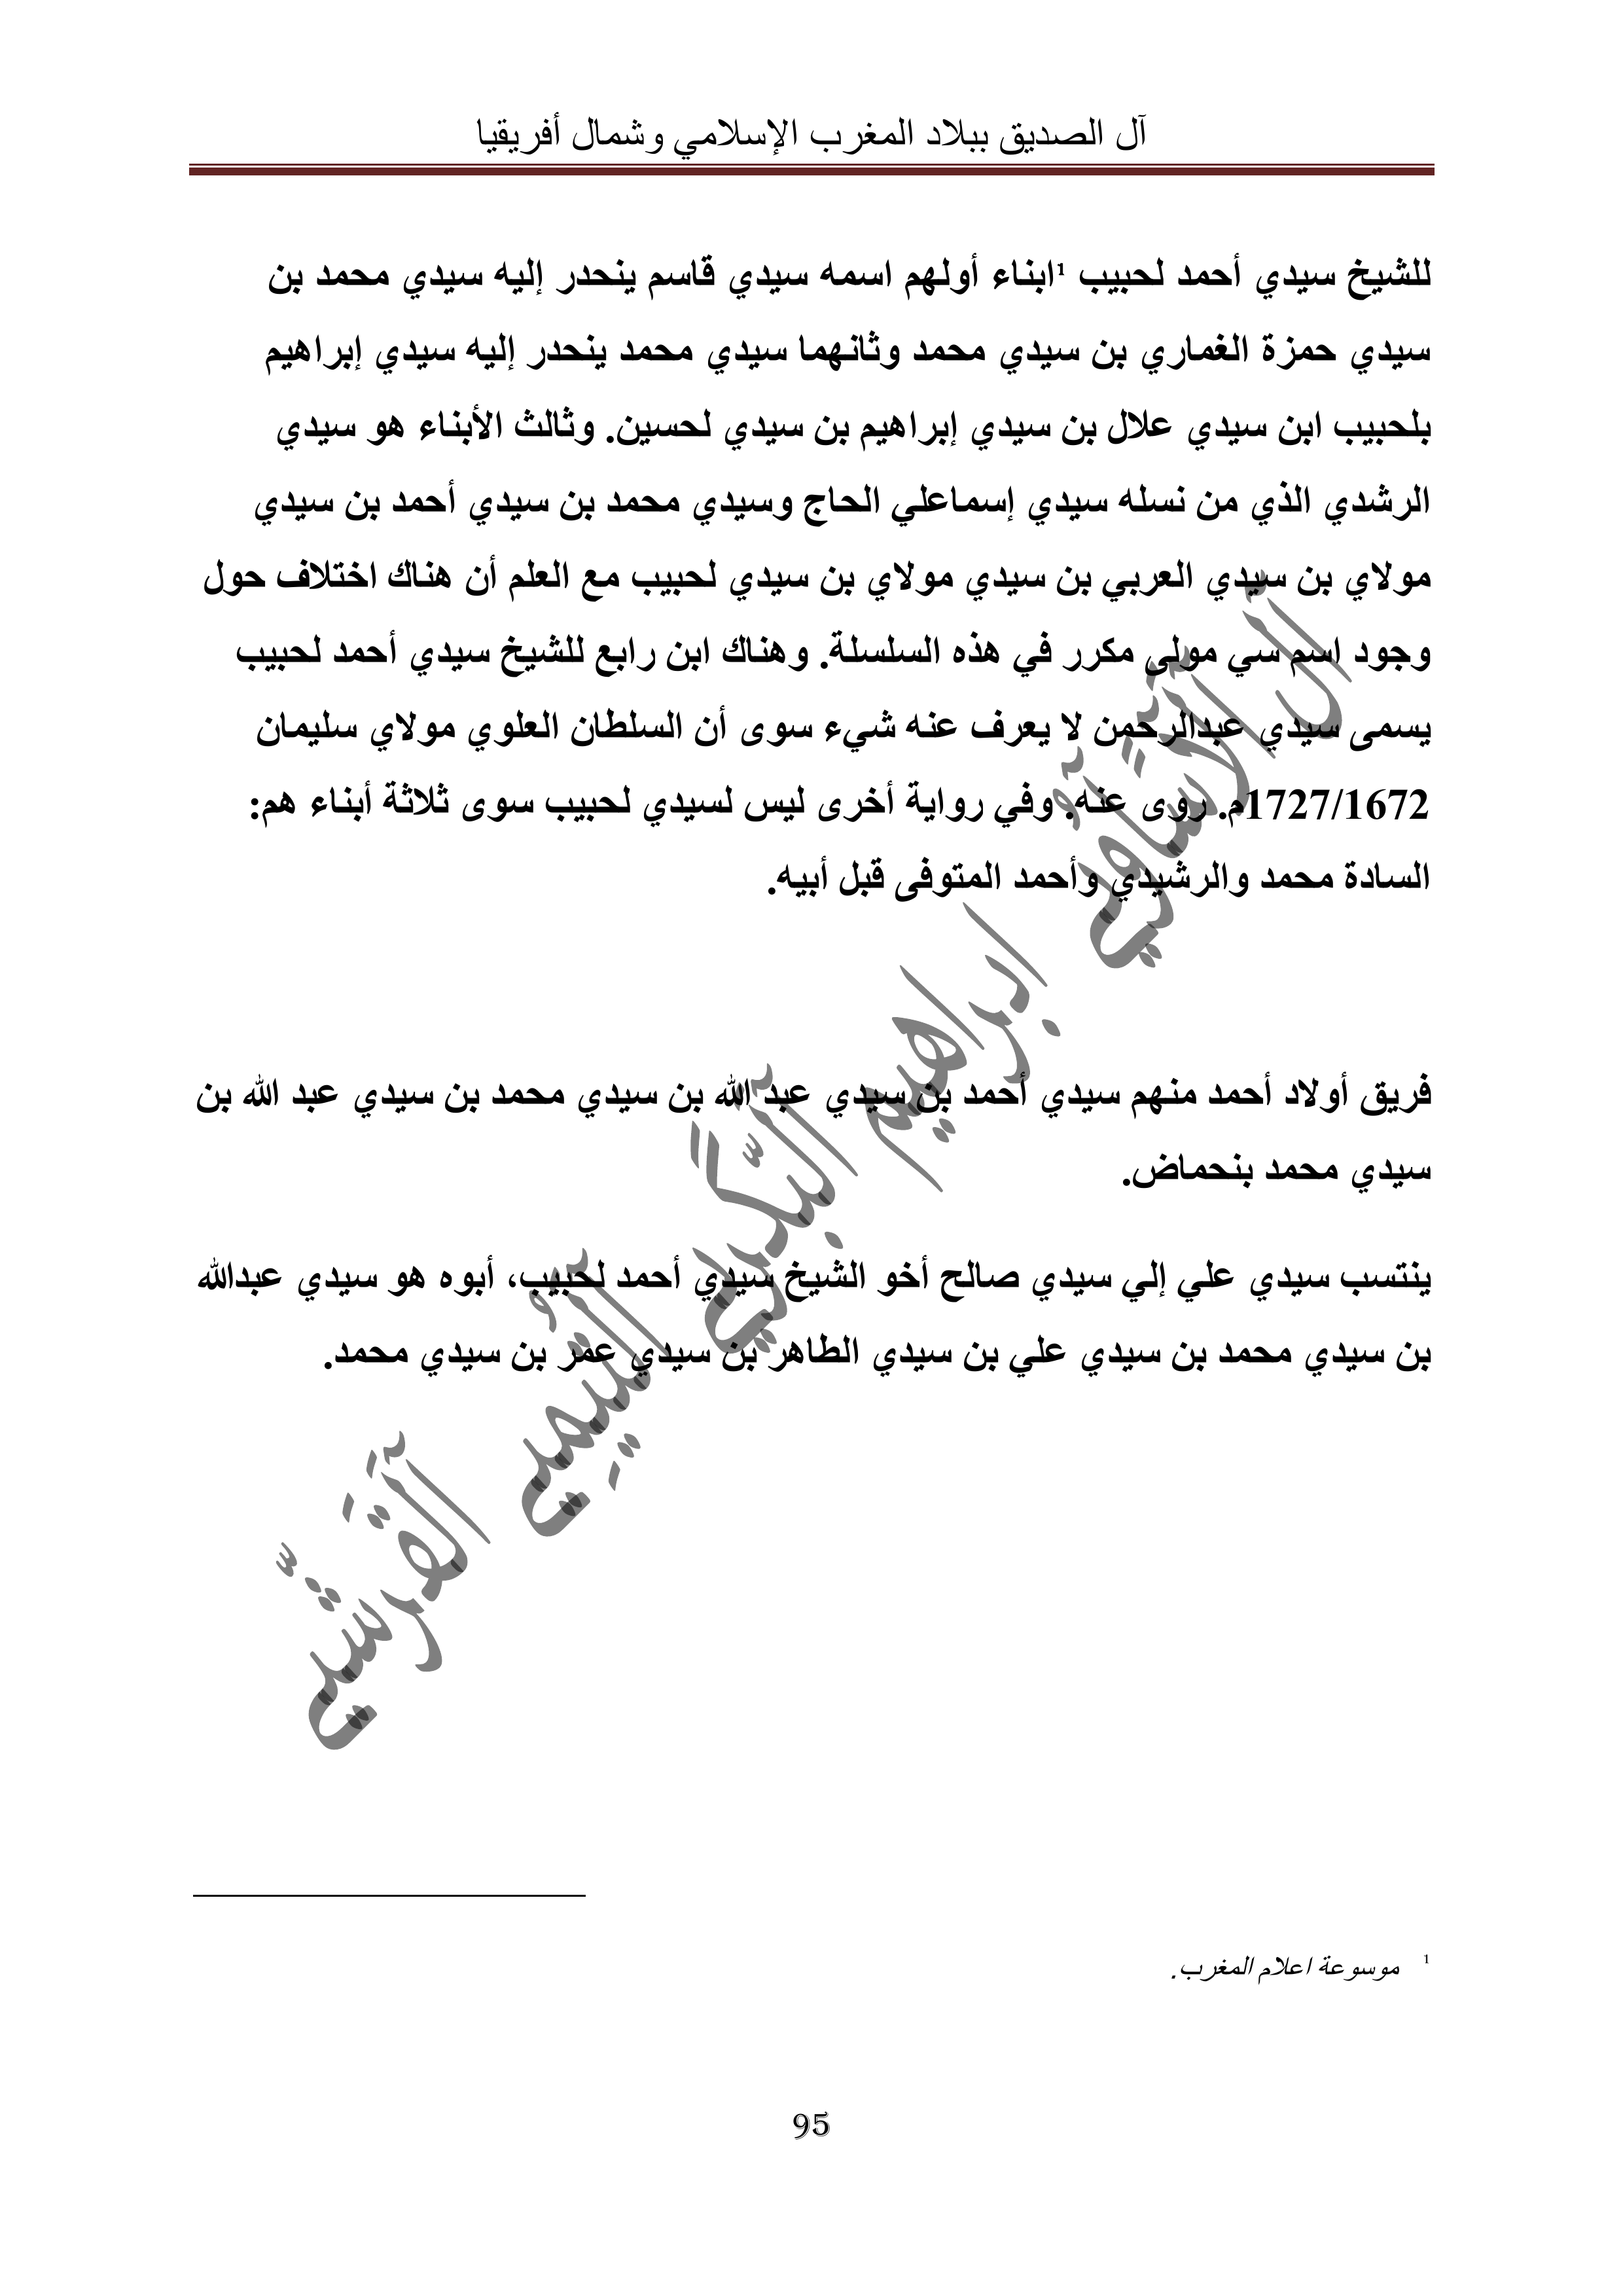 آل الصديق ببلاد المغرب الإسلامي وشمال أفريقيا
للشيخ سيدي أحمد لحبيب ¹ابناء أولهم اسمه سيدي قاسم ينحدر إليه سيدي محمد بن
سيدي حمزة الغماري بن سيدي محمد وثانهما سيدي محمد ينحدر إليه سيدي إبراهيم
بلحبيب ابن سيدي علال بن سيدي إبراهيم بن سيدي لحسين. وثالث الأبناء هو سيدي
الرشدي الذي من نسله سيدي إسماعلي الحاج وسيدي محمد بن سيدي أحمد بن سيدي
مولاي بن سيدي العربي بن سيدي مولاي بن سيدي لحبيب مع العلم أن هناك اختلاف حول
وجود اسم سي مولى مكرر في هذه السلسلة. وهناك ابن رابع للشيخ سيدي أحمد لحبيب
يسمى سيدي عبدالرحمن لا يعرف عنه شيء سوى أن السلطان العلوي مولاي سليمان
1727/1672م. روى عنه. وفي رواية أخرى ليس لسيدي لحبيب سوى ثلاثة أبناء هم:
السادة محمد والرشيدي وأحمد المتوفى قبل أبيه.
فريق أولاد أحمد منهم سيدي أحمد بن سيدي عبد الله بن سيدي محمد بن سيدي عبد الله بن
سيدي محمد بنحماض.
ينتسب سيدي علي إلي سيدي صالح أخو الشيخ سيدي أحمد لحبيب، أبوه هو سيدي عبدالله
بن سيدي محمد بن سيدي علي بن سيدي الطاهر بن سيدي عمر بن سيدي محمد.
ابراهيم البكري التيمي القرشي
¹ موسوعة اعلام المغرب.
95